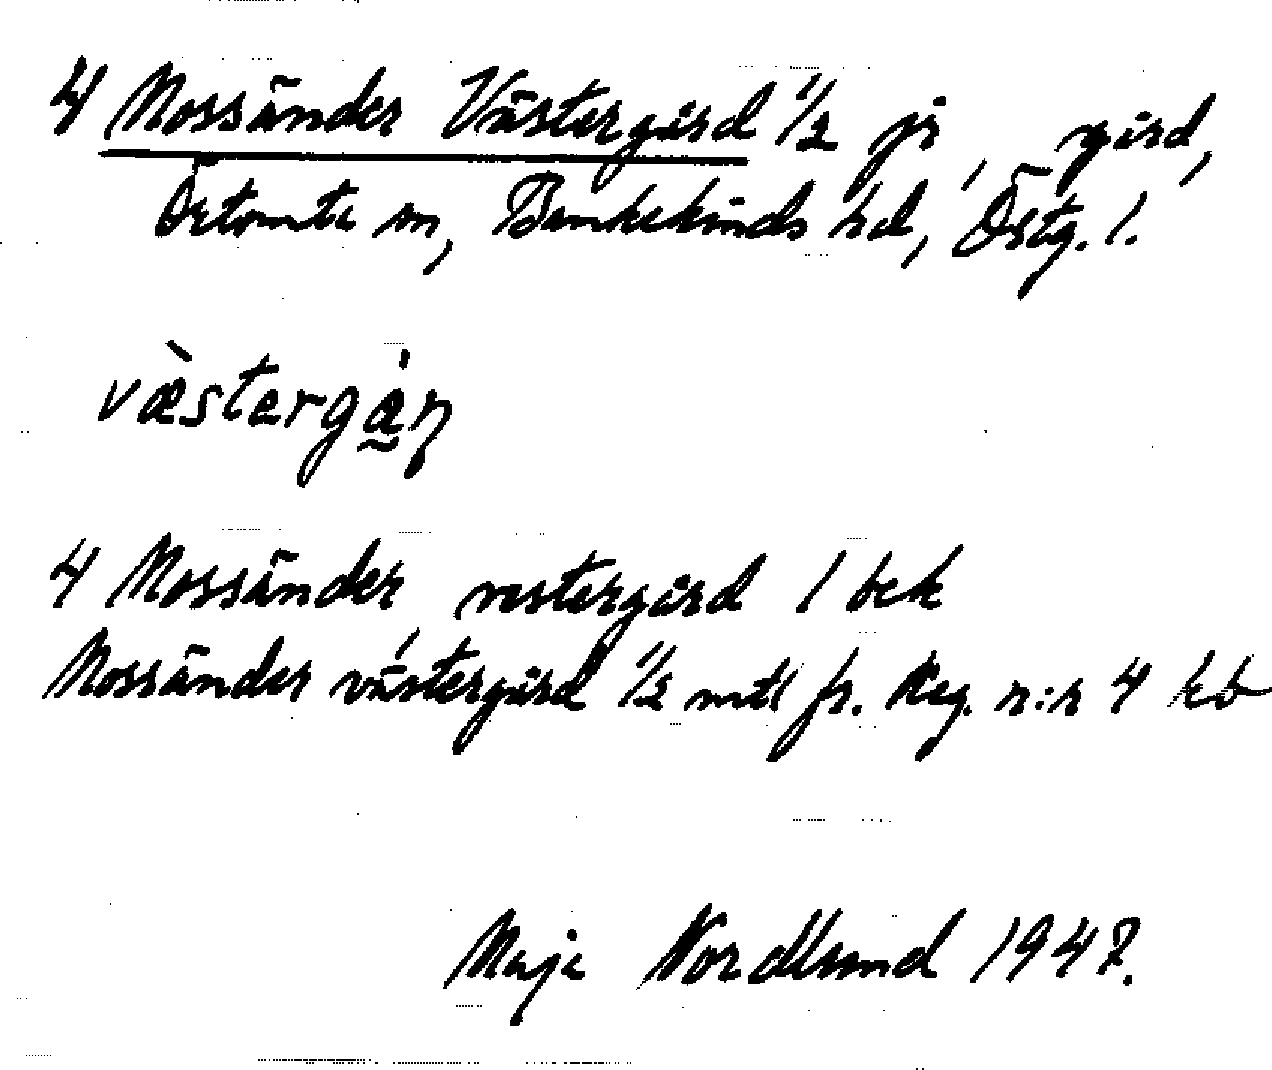 4 Mossänder Västergård 1/2 fr gård,
Örtomta sn, Bankekinds hd, Östg. l.
væ̀stergå̰ɳ
4 Mossänder västergård 1 bek
Mossänder västergård 1/2 mtl fr. Reg. n:r 4 kb
Maja Nordlund 1947.